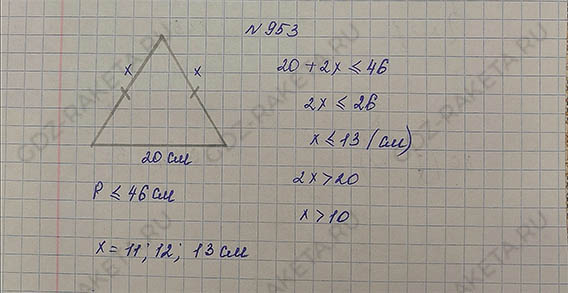 N 953
x x
20 + 2x ≤ 46
2x ≤ 26
x ≤ 13 (см)
20 см
2x > 20
P ≤ 46 см
x > 10
x = 11; 12; 13 см
GDZ-RAKETA.RU
GDZ-RAKETA.RU
GDZ-RAKETA.RU
GDZ-RAKETA.RU